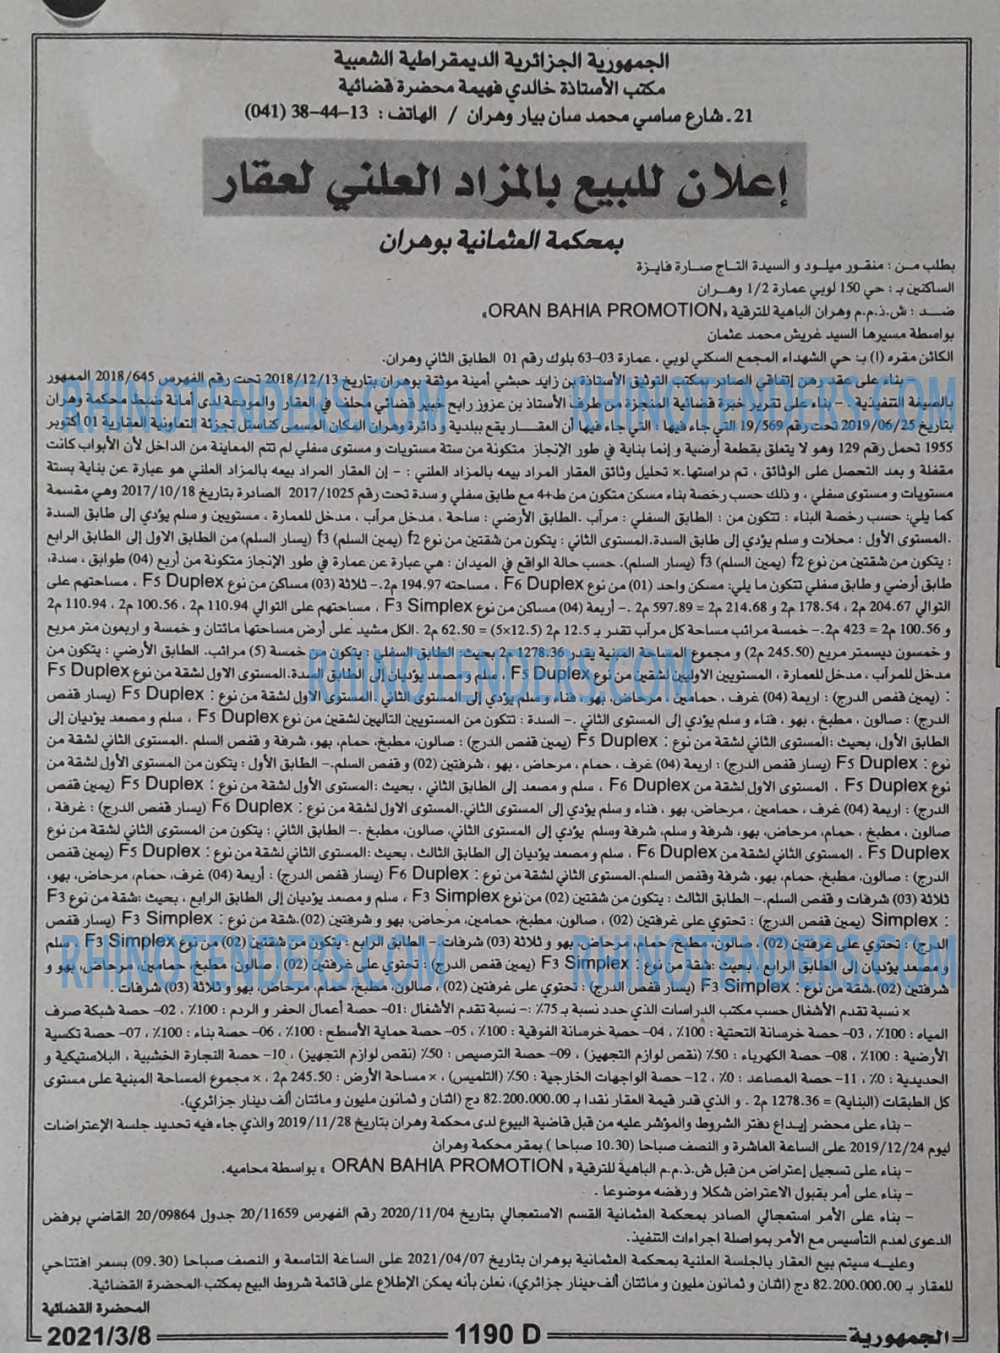 الجمهورية الجزائرية الديمقراطية الشعبية
مكتب الأستاذة خالدي فهيمة محضرة قضائية
21 ـ شارع ساسي محمد سان بيار وهران / الهاتف : 13-44-38 (041)
إعلان للبيع بالمزاد العلني لعقار
بمحكمة العثمانية بوهران
بطلب مـن : منقور ميلـود و السيدة التـاج صـارة فايـزة
الساكنين بـ : حي 150 لوبي عمارة 1/2 وهـران
ضـد : ش.ذ.م.م وهران الباهية للترقية «ORAN BAHIA PROMOTION»
بواسطة مسيرها السيد غريش محمد عثمان
الكائن مقره (ا) بـ: حي الشهداء المجمع السكني لوبي ، عمارة 03-63 بلوك رقم 01 الطابق الثاني وهران.
بناء على عقد رهن إتفاقي الصادر بمكتب التوثيق الأستاذة بن زايد حبشي أمينة موثقة بوهران بتاريخ 2018/12/13 تحت رقم الفهرس 2018/645 الممهور
بالصيغة التنفيذية . – بناء على تقرير خبرة قضائية المنجزة من طرف الأستاذ بن عزوز رابح خبير قضائي محلف في العقار والمودعة لدى أمانة ضبط محكمة وهران
بتاريخ 2019/06/25 تحت رقم 19/569 التي جاء فيها : التي جاء فيها أن العقـار يقع ببلدية و دائرة وهران المكان المسمى كناستل تجزئة التعاونية العقارية 01 أكتوبر
1955 تحمل رقم 129 وهو لا يتعلق بقطعة أرضية و إنما بناية في طور الإنجاز متكونة من ستة مستويات و مستوى سفلي لم تتم المعاينة من الداخل لأن الأبواب كانت
مقفلة و بعد التحصل على الوثائق ، تم دراستها.× تحليل وثائق العقار المراد بيعه بالمزاد العلني : – إن العقار المراد بيعه بالمزاد العلني هو عبارة عن بناية بستة
مستويات و مستوى سفلي ، و ذلك حسب رخصة بناء مسكن متكون من ط+4 مع طابق سفلي و سدة تحت رقم 2017/1025 الصادرة بتاريخ 2017/10/18 وهي مقسمة
كما يلي: حسب رخصة البناء : تتكون من : الطابق السفلي : مرآب .الطابق الأرضي : ساحة ، مدخل مرآب ، مدخل للعمارة ، مستويين و سلم يؤدي إلى طابق السدة
.المستوى الأول : محلات و سلم يؤدي إلى طابق السدة.المستوى الثاني : يتكون من شقتين من نوع f2 (يمين السلم) f3 (يسار السلم) من الطابق الاول إلى الطابق الرابع
: يتكون من شقتين من نوع f2 (يمين السلم) f3 (يسار السلم). حسب حالة الواقع في الميدان : هي عبارة عن عمارة في طور الإنجاز متكونة من أربع (04) طوابق ، سدة،
طابق أرضي و طابق سفلي تتكون ما يلي: مسكن واحد (01) من نوع F6 Duplex ، مساحته 194.97 م2.- ثلاثة (03) مساكن من نوع F5 Duplex ، مساحتهم على
التوالي 204.67 م2 ، 178.54 م2 و 214.68 م2 = 597.89 م2 .- أربعة (04) مساكن من نوع F3 Simplex ، مساحتهم على التوالي 110.94 م2 ، 100.56 م2 ، 110.94 م2
و 100.56 م2 = 423 م2.- خمسة مرائب مساحة كل مرآب تقدر بـ 12.5 م2 (12.5×5) = 62.50 م2 .الكل مشيد على أرض مساحتها مائتان و خمسة و اربعون متر مربع
و خمسون ديسمتر مربع (245.50 م2) و مجموع المساحة المبنية يقدر 1278.36 م2 بحيث: الطابق السفلي : يتكون من خمسة (5) مرائب. الطابق الأرضي : يتكون من
مدخل للمرآب ، مدخل للعمارة ، المستويين الاوليين لشقتين من نوع F5 Duplex ، سلم و مصعد يؤديان إلى طابق السدة.المستوى الاول لشقة من نوع F5 Duplex
: (يمين قفص الدرج) : اربعة (04) غرف ، حمامين ، مرحاض، بهو، فناء و سلم يؤدي إلى المستوى الثاني .المستوى الأول لشقة من نوع : F5 Duplex (يسار قفص
الدرج) : صالون ، مطبخ ، بهو ، فناء و سلم يؤدي إلى المستوى الثاني .- السدة : تتكون من المستويين التاليين لشقتين من نوع F5 Duplex ، سلم و مصعد يؤديان إلى
الطابق الأول، بحيث :المستوى الثاني لشقة من نوع : F5 Duplex (يمين قفص الدرج) : صالون، مطبخ، حمام، بهو، شرفة و قفص السلم .المستوى الثاني لشقة من
نوع : F5 Duplex (يسار قفص الدرج) : اربعة (04) غرف ، حمام ، مرحاض ، بهو ، شرفتين (02) و قفص السلم.- الطابق الأول : يتكون من المستوى الأول لشقة من
نوع F5 Duplex ، المستوى الاول لشقة من F6 Duplex ، سلم و مصعد إلى الطابق الثاني ، بحيث :المستوى الأول لشقة من نوع : F5 Duplex (يمين قفص
الدرج) : اربعة (04) غرف ، حمامين ، مرحاض، بهو ، فناء و سلم يؤدي إلى المستوى الثاني.المستوى الاول لشقة من نوع : F6 Duplex (يسار قفص الدرج) : غرفة ،
صالون ، مطبخ ، حمام، مرحاض، بهو، شرفة و سلم، شرفة وسلم يؤدي إلى المستوى الثاني، صالون، مطبخ .- الطابق الثاني : يتكون من المستوى الثاني لشقة من نوع
F5 Duplex ، المستوى الثاني لشقة من F6 Duplex ، سلم و مصعد يؤديان إلى الطابق الثالث ، بحيث :المستوى الثاني لشقة من نوع : F5 Duplex (يمين قفص
الدرج) : صالون، مطبخ، حمام، بهو، شرفة وقفص السلم.المستوى الثاني لشقة من نوع : F6 Duplex (يسار قفص الدرج) : أربعة (04) غرف، حمام، مرحاض، بهو،
ثلاثة (03) شرفات و قفص السلم.- الطابق الثالث : يتكون من شقتين (02) من نوع F3 Simplex ، سلم و مصعد يؤديان إلى الطابق الرابع ، بحيث :شقة من نوع F3
Simplex : (يمين قفص الدرج) : تحتوي على غرفتين (02) ، صالون، مطبخ، حمامين، مرحاض، بهو و شرفتين (02).شقة من نوع : F3 Simplex (يسار قفص
الدرج) : تحتوي على غرفتين (02) ، صالون، مطبخ، حمام، مرحاض، بهو و ثلاثة (03) شرفات.- الطابق الرابع : يتكون من شقتين (02) من نوع F3 Simplex ، سلم
و مصعد يؤديان إلى الطابق الرابع ، بحيث :شقة من نوع : F3 Simplex (يمين قفص الدرج) : تحتوي على غرفتين (02) ، صالون، مطبخ، حمامين، مرحاض، بهو و
شرفتين (02).شقة من نوع : F3 Simplex (يسار قفص الدرج) : تحتوي على غرفتين (02) ، صالون، مطبخ، حمام، مرحاض، بهو و ثلاثة (03) شرفات.
× نسبة تقدم الأشغال حسب مكتب الدراسات الذي حدد نسبة بـ 75% :- نسبة تقدم الأشغال :01- حصة أعمال الحفر و الردم : 100% ، 02- حصة شبكة صرف
المياه : 100% ، 03- حصة خرسانة التحتية : 100% ، 04- حصة خرسانة الفوقية : 100% ، 05- حصة حماية الأسطح : 100% ، 06- حصة بناء : 100% ، 07- حصة تكسية
الأرضية : 100% ، 08- حصة الكهرباء : 50% (نقص لوازم التجهيز) ، 09- حصة الترصيص : 50% (نقص لوازم التجهيز) ، 10- حصة النجارة الخشبية ، البلاستيكية و
الحديدية : 0% ، 11- حصة المصاعد : 0% ، 12- حصة الواجهات الخارجية : 50% (التلميس) ، × مساحة الأرض : 245.50 م2 ، × مجموع المساحة المبنية على مستوى
كل الطبقات (البناية) = 1278.36 م2 . و الذي قدر قيمة العقار نقدا بـ 82.200.000.00 دج (اثنان و ثمانون مليون و مائتان ألف دينار جزائري).
– بناء على محضر إيداع دفتر الشروط والمؤشر عليه من قبل قاضية البيوع لدى محكمة وهران بتاريخ 2019/11/28 والذي جاء فيه تحديد جلسة الإعتراضات
ليوم 2019/12/24 على الساعة العاشرة و النصف صباحا (10.30 صباحا ) بمقر محكمة وهران
– بناء على تسجيل إعتراض من قبل ش.ذ.م.م الباهية للترقية « ORAN BAHIA PROMOTION » بواسطة محاميه.
– بناء على أمر بقبول الاعتراض شكلا و رفضه موضوعا .
– بناء على الأمر استعجالي الصادر بمحكمة العثمانية القسم الاستعجالي بتاريخ 2020/11/04 رقم الفهرس 20/11659 جدول 20/09864 القاضي برفض
الدعوى لعدم التأسيس مع الأمر بمواصلة اجراءات التنفيذ.
وعليـه سيتم بيع العقار بالجلسة العلنية بمحكمة العثمانية بوهران بتاريخ 2021/04/07 على الساعة التاسعة و النصف صباحا (09.30) بسعر افتتاحي
للعقار بـ 82.200.000.00 دج (اثنان و ثمانون مليون و مائتان ألف دينار جزائري)، نعلن بأنه يمكن الإطلاع على قائمة شروط البيع بمكتب المحضرة القضائية.
المحضرة القضائية
الجمهورية 1190 D 2021/3/8
RHINOTENDERS.COM RHINOTENDERS.COM
RHINOTENDERS.COM
RHINOTENDERS.COM RHINOTENDERS.COM